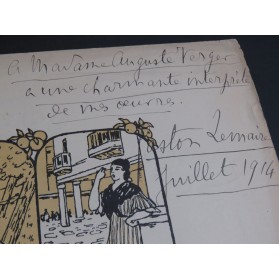 a Madame Auguste Verger
a une charmante interprète
de mes œuvres.
aston Lemaire
juillet 1914